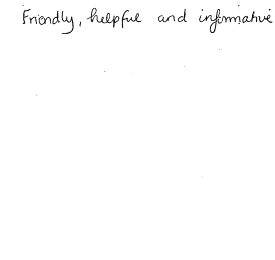 Friendly, helpful and informative